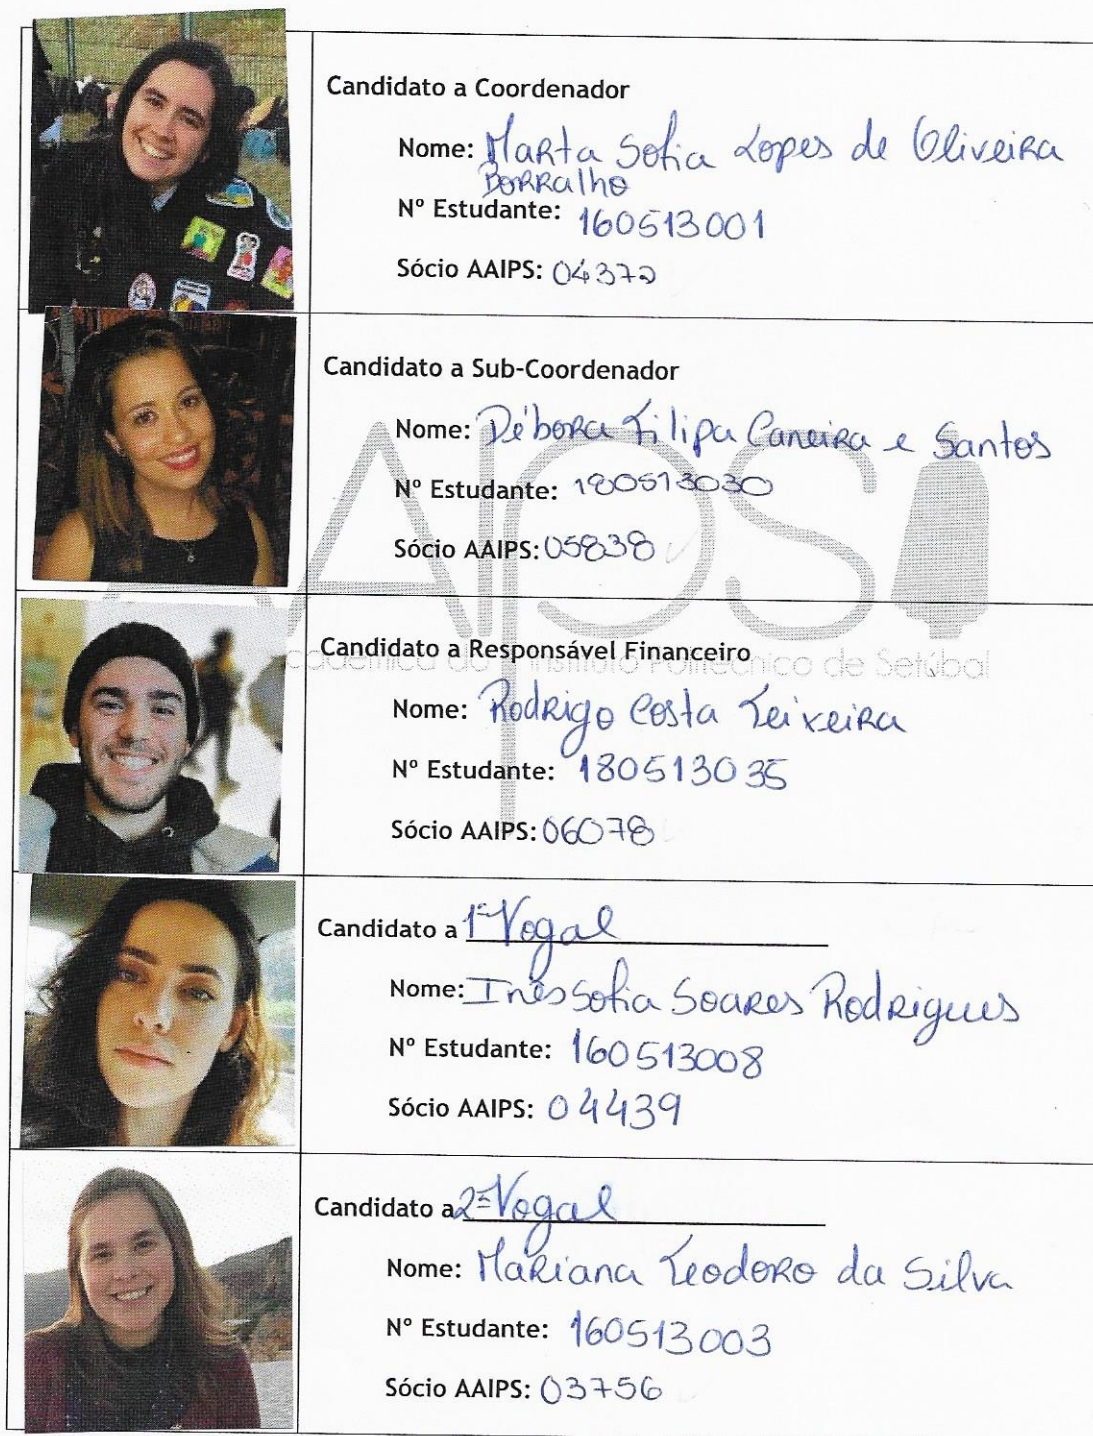 Candidato a Coordenador
Nome: Marta Sofia Lopes de Oliveira
Borralho
Nº Estudante: 160513001
Sócio AAIPS: 04372
Candidato a Sub-Coordenador
Nome: Débora Filipa Caneira e Santos
Nº Estudante: 180513030
Sócio AAIPS: 05838
AAIPS
Candidato a Responsável Financeiro
Académica do Instituto Politécnico de Setúbal
Nome: Rodrigo Costa Teixeira
Nº Estudante: 180513035
Sócio AAIPS: 06078
Candidato a 1º Vogal
Nome: Inês Sofia Soares Rodrigues
Nº Estudante: 160513008
Sócio AAIPS: 04439
Candidato a 2º Vogal
Nome: Mariana Teodoro da Silva
Nº Estudante: 160513003
Sócio AAIPS: 03756